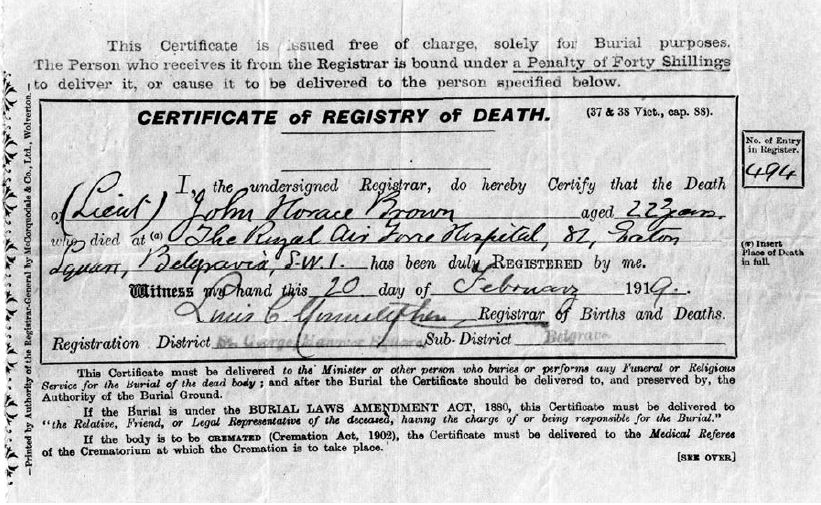 This Certificate is issued free of charge, solely for Burial purposes.
The Person who receives it from the Registrar is bound under a Penalty of Forty Shillings
to deliver it, or cause it to be delivered to the person specified below.
CERTIFICATE of REGISTRY of DEATH.
(37 & 38 Vict., cap. 88).
No. of Entry
in Register.
494
I, the undersigned Registrar, do hereby Certify that the Death
of (Lieut) John Horace Brown aged 22 years
who died at (a) The Royal Air Force Hospital, 82, Eaton
Square, Belgravia, S.W.1. has been duly REGISTERED by me.
(a) Insert
Place of Death
in full.
Witness my hand this 20 day of February 1919.
Louis C. Registrar of Births and Deaths.
Registration District St. George Hanover Square Sub-District Belgrave
This Certificate must be delivered to the Minister or other person who buries or performs any Funeral or Religious
Service for the Burial of the dead body; and after the Burial the Certificate should be delivered to, and preserved by, the
Authority of the Burial Ground.
If the Burial is under the BURIAL LAWS AMENDMENT ACT, 1880, this Certificate must be delivered to
"the Relative, Friend, or Legal Representative of the deceased, having the charge of or being responsible for the Burial."
If the body is to be CREMATED (Cremation Act, 1902), the Certificate must be delivered to the Medical Referee
of the Crematorium at which the Cremation is to take place.
[SEE OVER]
—Printed by Authority of the Registrar-General by McCorquodale & Co., Ltd., Wolverton.—